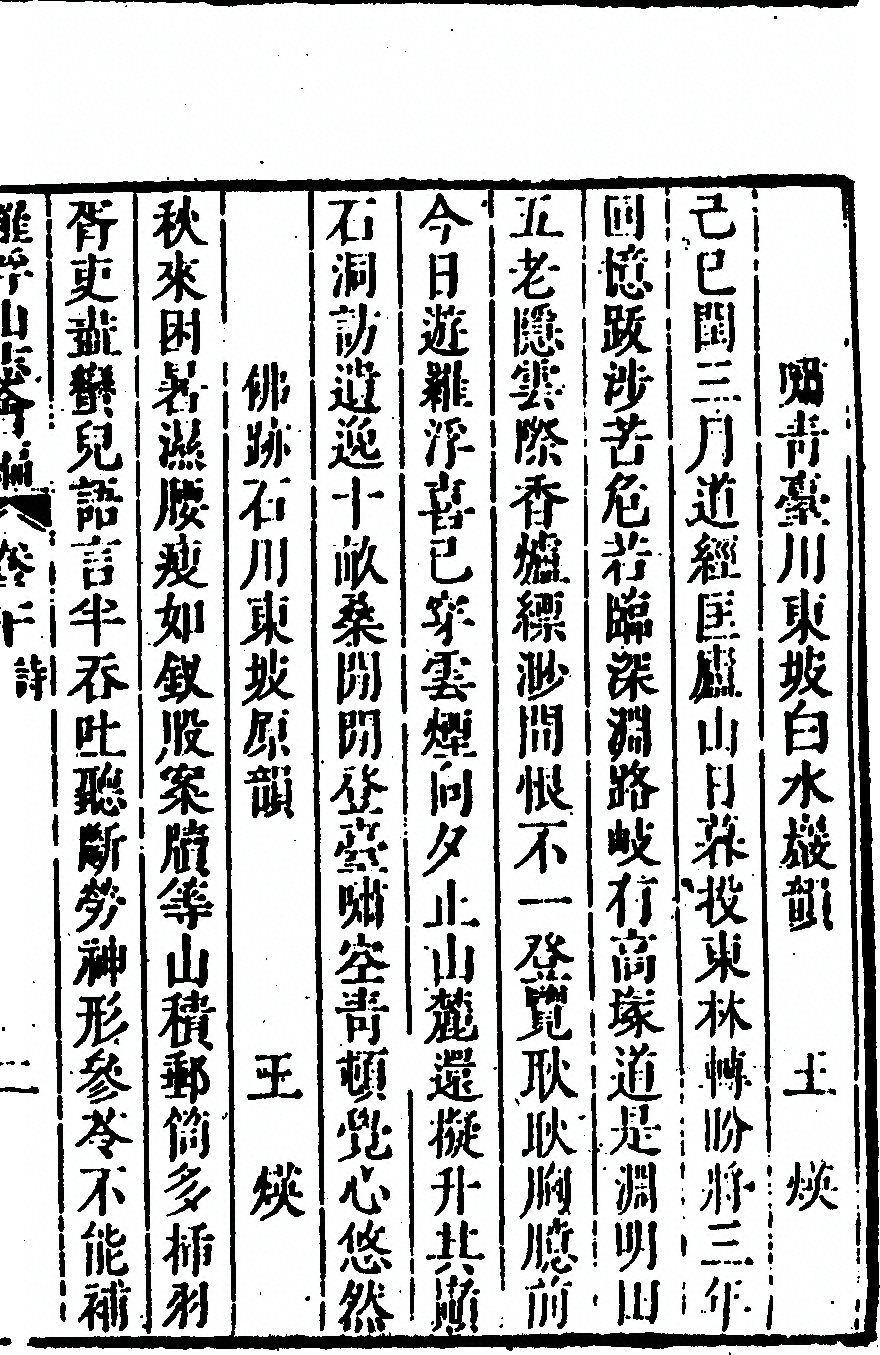 嘯青臺川東坡白水巖韻 王煐
己巳閏三月道經匡廬山日暮投東林轉盼將三年
回憶跋涉苦危若臨深淵路岐有高塚道是淵明田
五老隱雲際香爐縹渺間恨不一登覽耿耿胸臆前
今日遊羅浮喜已穿雲煙向夕止山麓還擬升其巔
石洞訪遺逸十畝桑閒閒登臺嘯空青頓覺心悠然
佛跡石川東坡原韻 王煐
秋來困暑濕腰瘦如釵股案牘等山積郵筒多插羽
胥吏盡蠻兒語言半吞吐聽斷勞神形參苓不能補
羅浮山志會編 卷十 詩 二